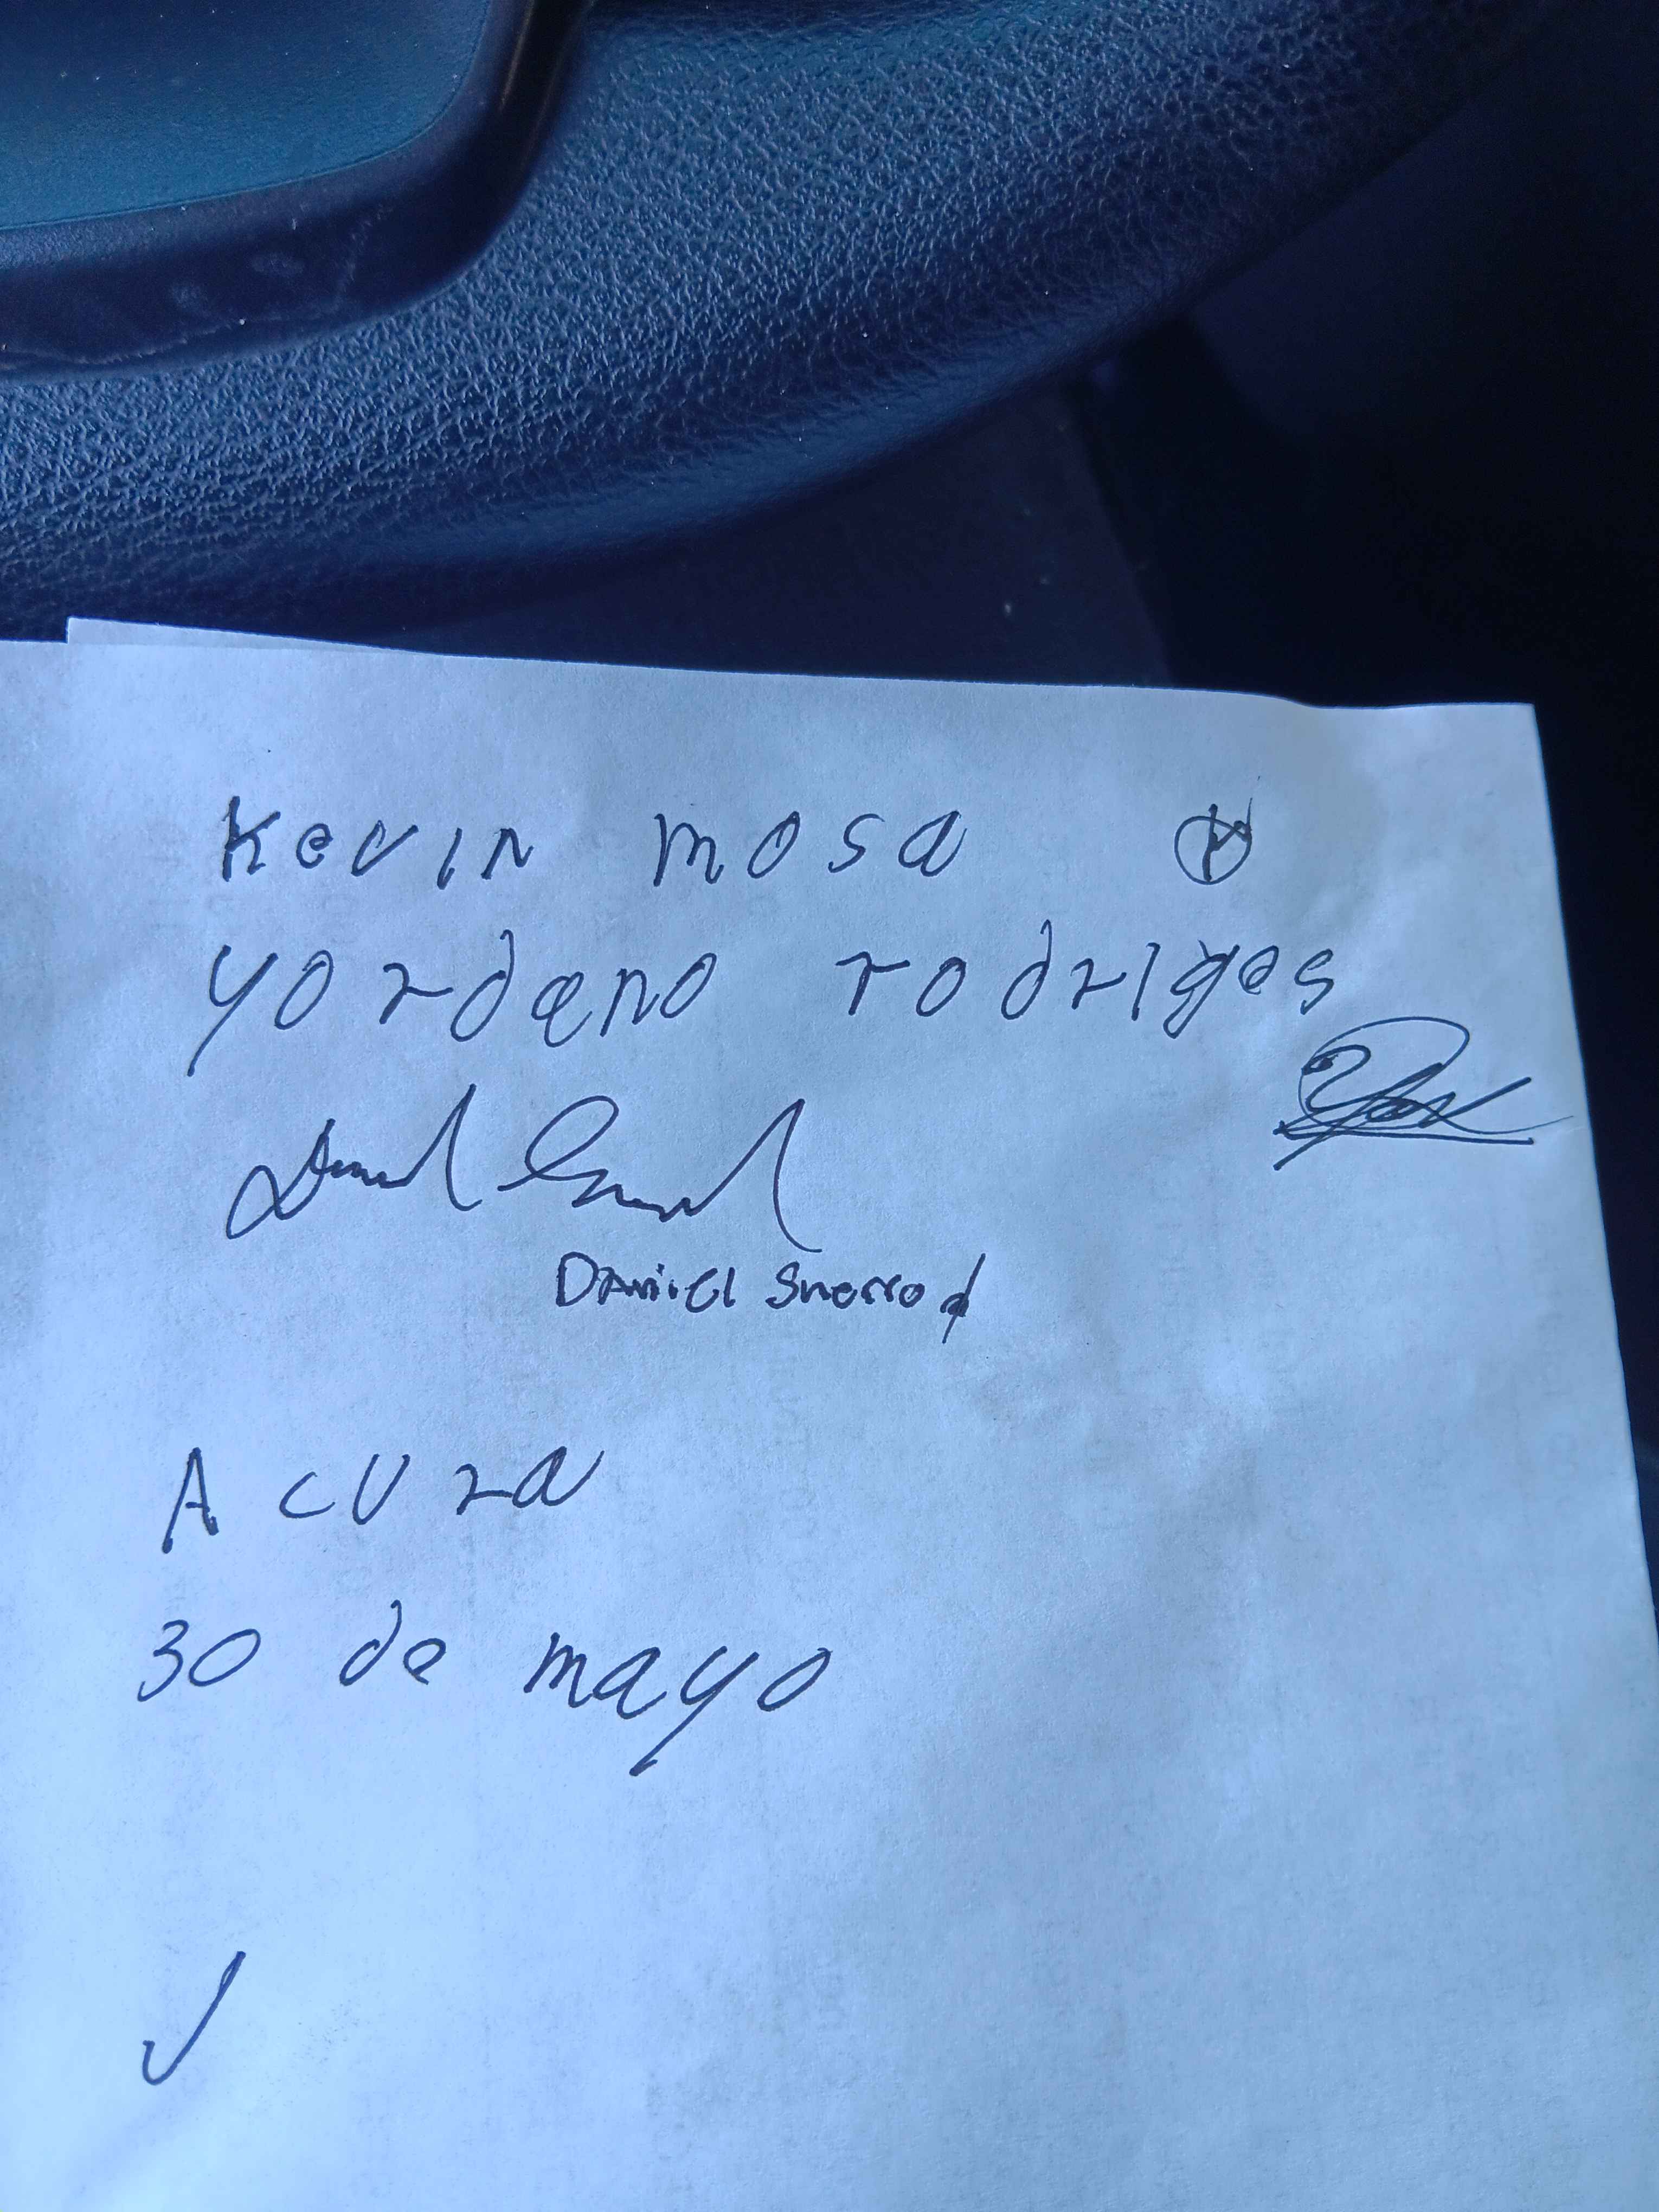 Kevin mosa
yordano rodriges
Daniel Sherrod
Acura
30 de mayo